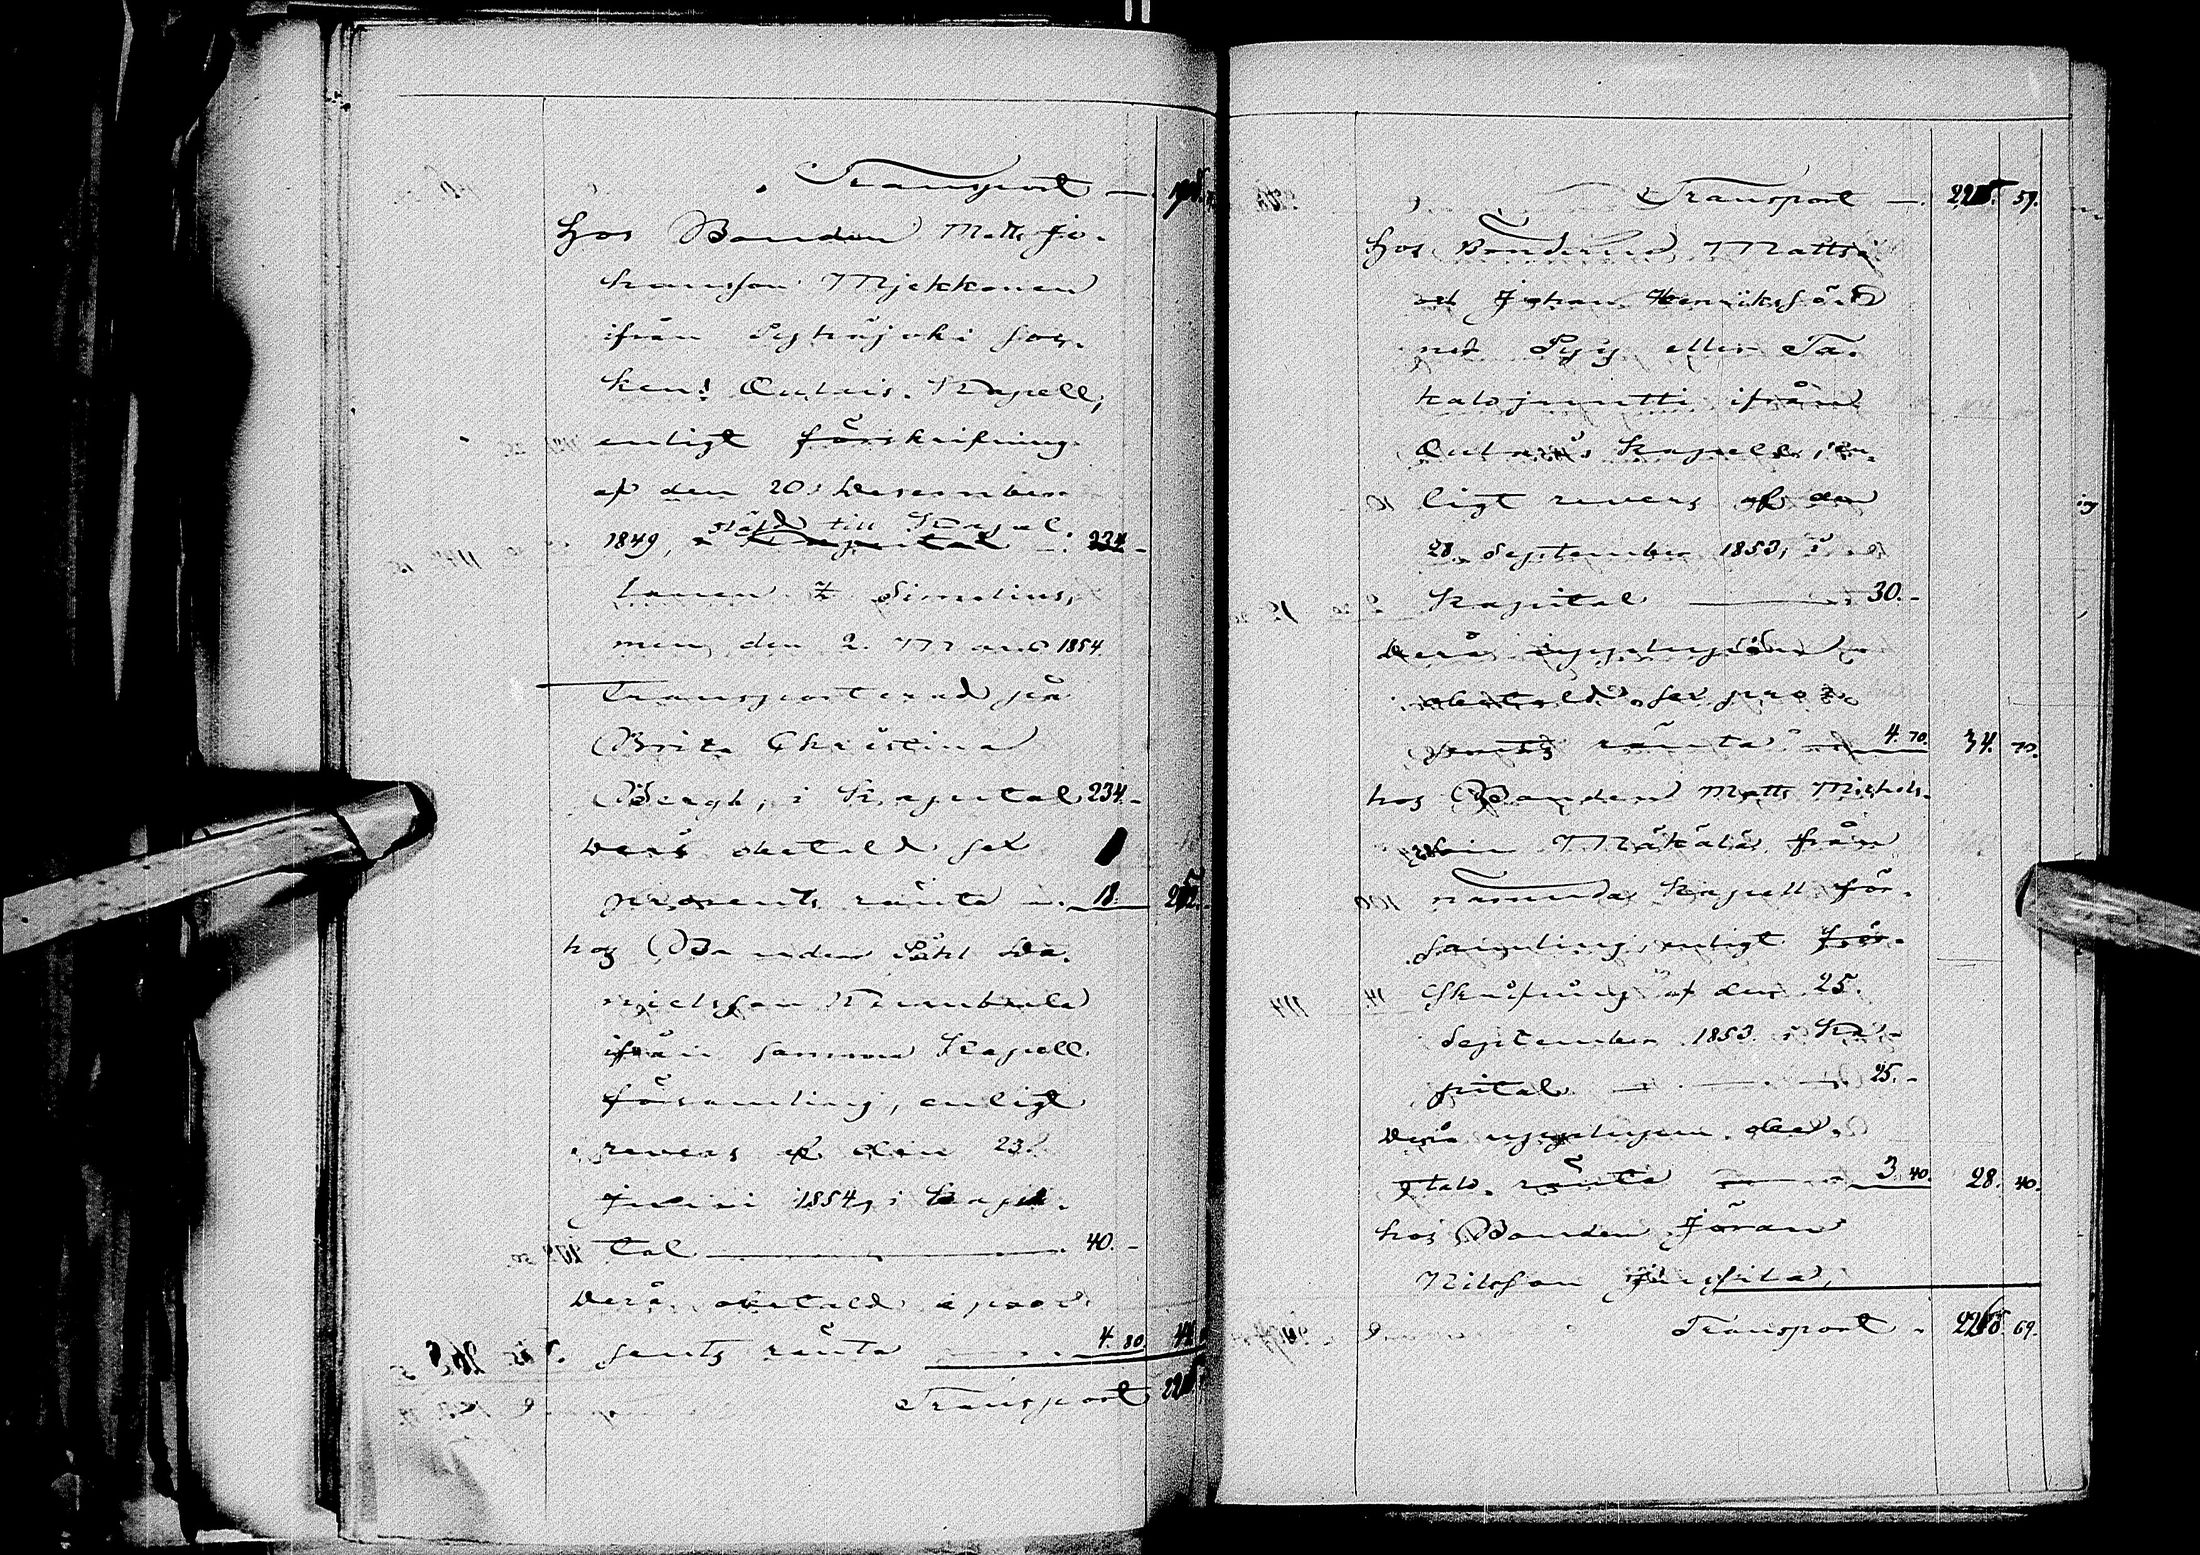 Transport —
Hos Bonden Matts Jo-
hansson Mjekkonen
ifrån Pyhäjoki soc-
ken Oulais Kapell,
enligt förskrifning
af den 20 December
1849, ställd till Kapel- 234 -
lanen Z Simelius,
men den 2. Mars 1854
Transporterad på
Brita Christina
Bergh, i Kapital 234. -
derå obetald sex
procents ränta 18.
hos Bonden Da-
nielsson
ifrån samma Kapell
församling, enligt
revers af den 23
Junii 1854, i kapi-
tal — 40. -
derå obetald 6 pro-
cents ränta 4. 80
Transport
Transport — 59.
Hos Bönderne Matts
och Johan Henrikssöner
Pyy eller Ta-
kalojuntti ifrån
Oulais Kapell, en-
ligt revers af den
28. September 1853, i
Kapital — 30. -
derå upplupen
obetald sex pro-
cents ränta 4. 70. 34. 70.
hos Bonden Matts Michels-
son Mäkälä från
namnda Kapell för-
samling, enligt för-
skrifning af den 25.
September 1853 i Ka-
pital — 25. -
derå upplupen obe-
tald ränta — 3. 40. 28. 40.
hos Bonden Jöran
Nilsson
Transport 69.